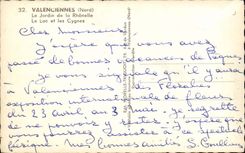 32. VALENCIENNES (Nord)
Le Jardin de la Rhônelle
Le Lac et les Cygnes
Cher Monsieur
J'espère que vous avez
passé de bonnes vacances de Pâques
Je vous signale qu'il y aura
à Valenciennes les Floralies
exposition internationale de fleurs
du 23 avril au 3 mai je regrette
de ne pouvoir y
vous pourrez assister à ce spectacle
Mes bonnes amitiés